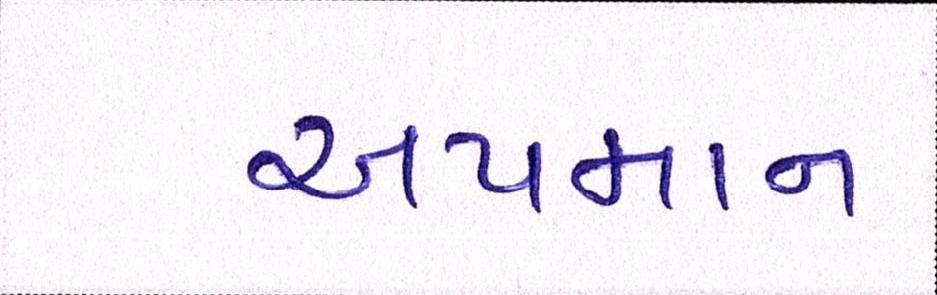 અપમાન